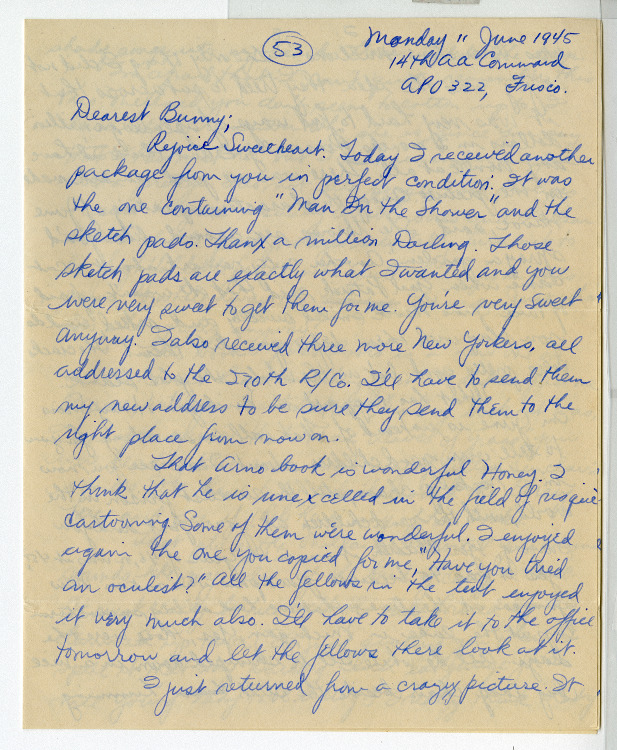 53
Monday 11 June 1945
14th AA Command
APO 322, Frisco.
Dearest Bunny;
Rejoice Sweetheart. Today I received another
package from you in perfect condition. It was
the one containing "Man In the Shower" and the
sketch pads. Thanx a million Darling. Those
sketch pads are exactly what I wanted and you
were very sweet to get them for me. You're very sweet
anyway. I also received three more New Yorkers, all
addressed to the 270th R/Co. I'll have to send them
my new address to be sure they send them to the
right place from now on.
That Arno book is wonderful Honey. I
think that he is unexcelled in the field of risque
cartooning. Some of them were wonderful. I enjoyed
again the one you copied for me, "Have you tried
an oculist?" All the fellows in the tent enjoyed
it very much also. I'll have to take it to the office
tomorrow and let the fellows there look at it.
I just returned from a crazy picture. It